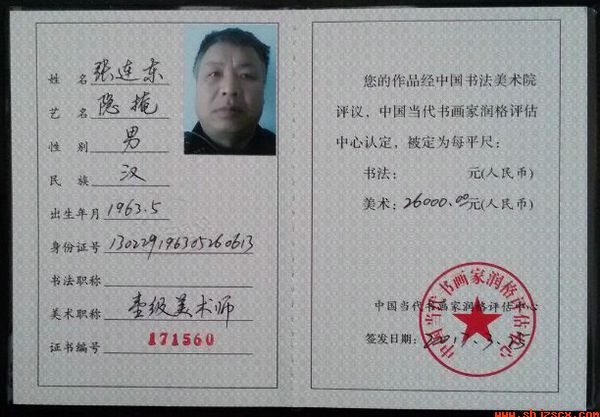 姓 名 张连东
艺 名 隐掩
性 别 男
民 族 汉
出生年月 1963.5
身份证号 130229196305260613
书法职称
美术职称 壹级美术师
证书编号 171560
您的作品经中国书法美术院
评议，中国当代书画家润格评估
中心认定，被定为每平尺：
书法： 元(人民币)
美术：26000.00元(人民币)
中国当代书画家润格评估中心
签发日期：
中国当代书画家润格评估中心
www.shjzscx.com